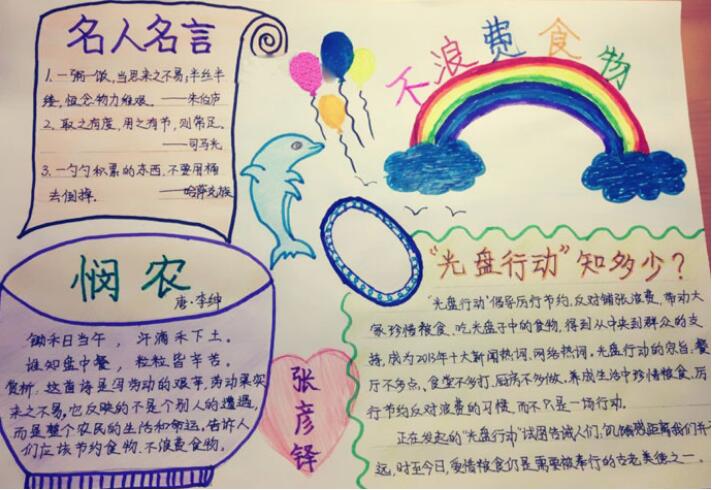 名人名言
1. 一粥一饭，当思来之不易；半丝半
缕，恒念物力维艰。——朱伯庐
2. 取之有度，用之有节，则常足。
——司马光
3. 一勺勺积累的东西，不要用桶
去倒掉。——哈萨克族
不浪费食物
悯农
唐·李绅
锄禾日当午，汗滴禾下土。
谁知盘中餐，粒粒皆辛苦。
赏析：这首诗是写劳动的艰辛，劳动果实
来之不易，它反映的不是个别人的遭遇，
而是整个农民的生活和命运。告诉人
们应该节约食物，不浪费食物。
张彦铎
“光盘行动”知多少？
“光盘行动”倡导厉行节约，反对铺张浪费，带动大
家珍惜粮食、吃光盘子中的食物，得到从中央到群众的支
持，成为2013年十大新闻热词、网络热词。光盘行动的宗旨：餐
厅不多点、食堂不多打、厨房不多做。养成生活中珍惜粮食、厉
行节约反对浪费的习惯，而不只是一场行动。
正在发起的“光盘行动”试图告诫人们，饥饿感距离我们并不
远，时至今日，爱惜粮食仍是需要被奉行的古老美德之一。